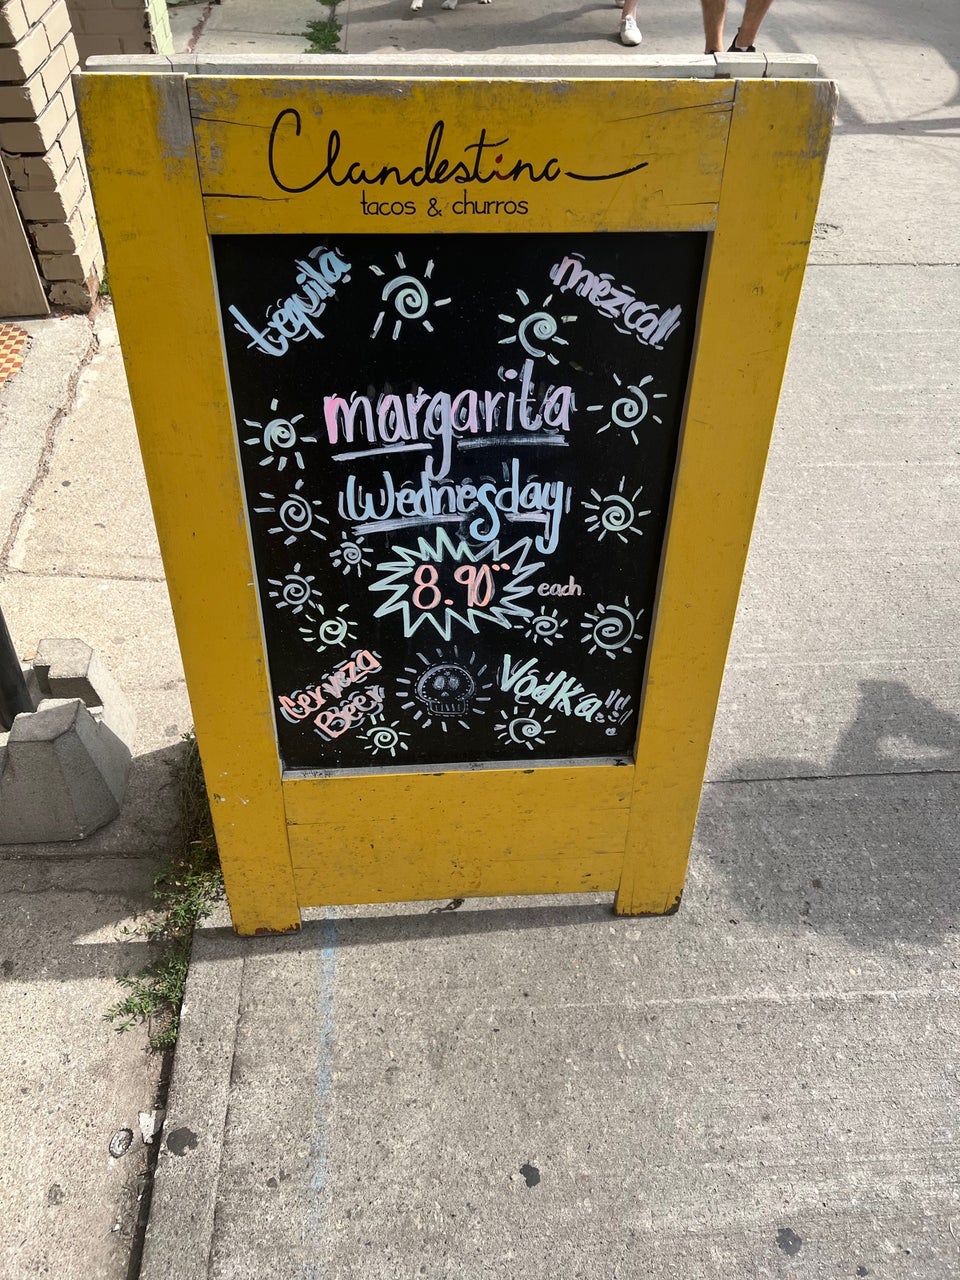 Clandestina
tacos & churros
tequila
mezcal!
margarita
Wednesday
8.90
each.
Cerveza
Beer
Vodka!!!